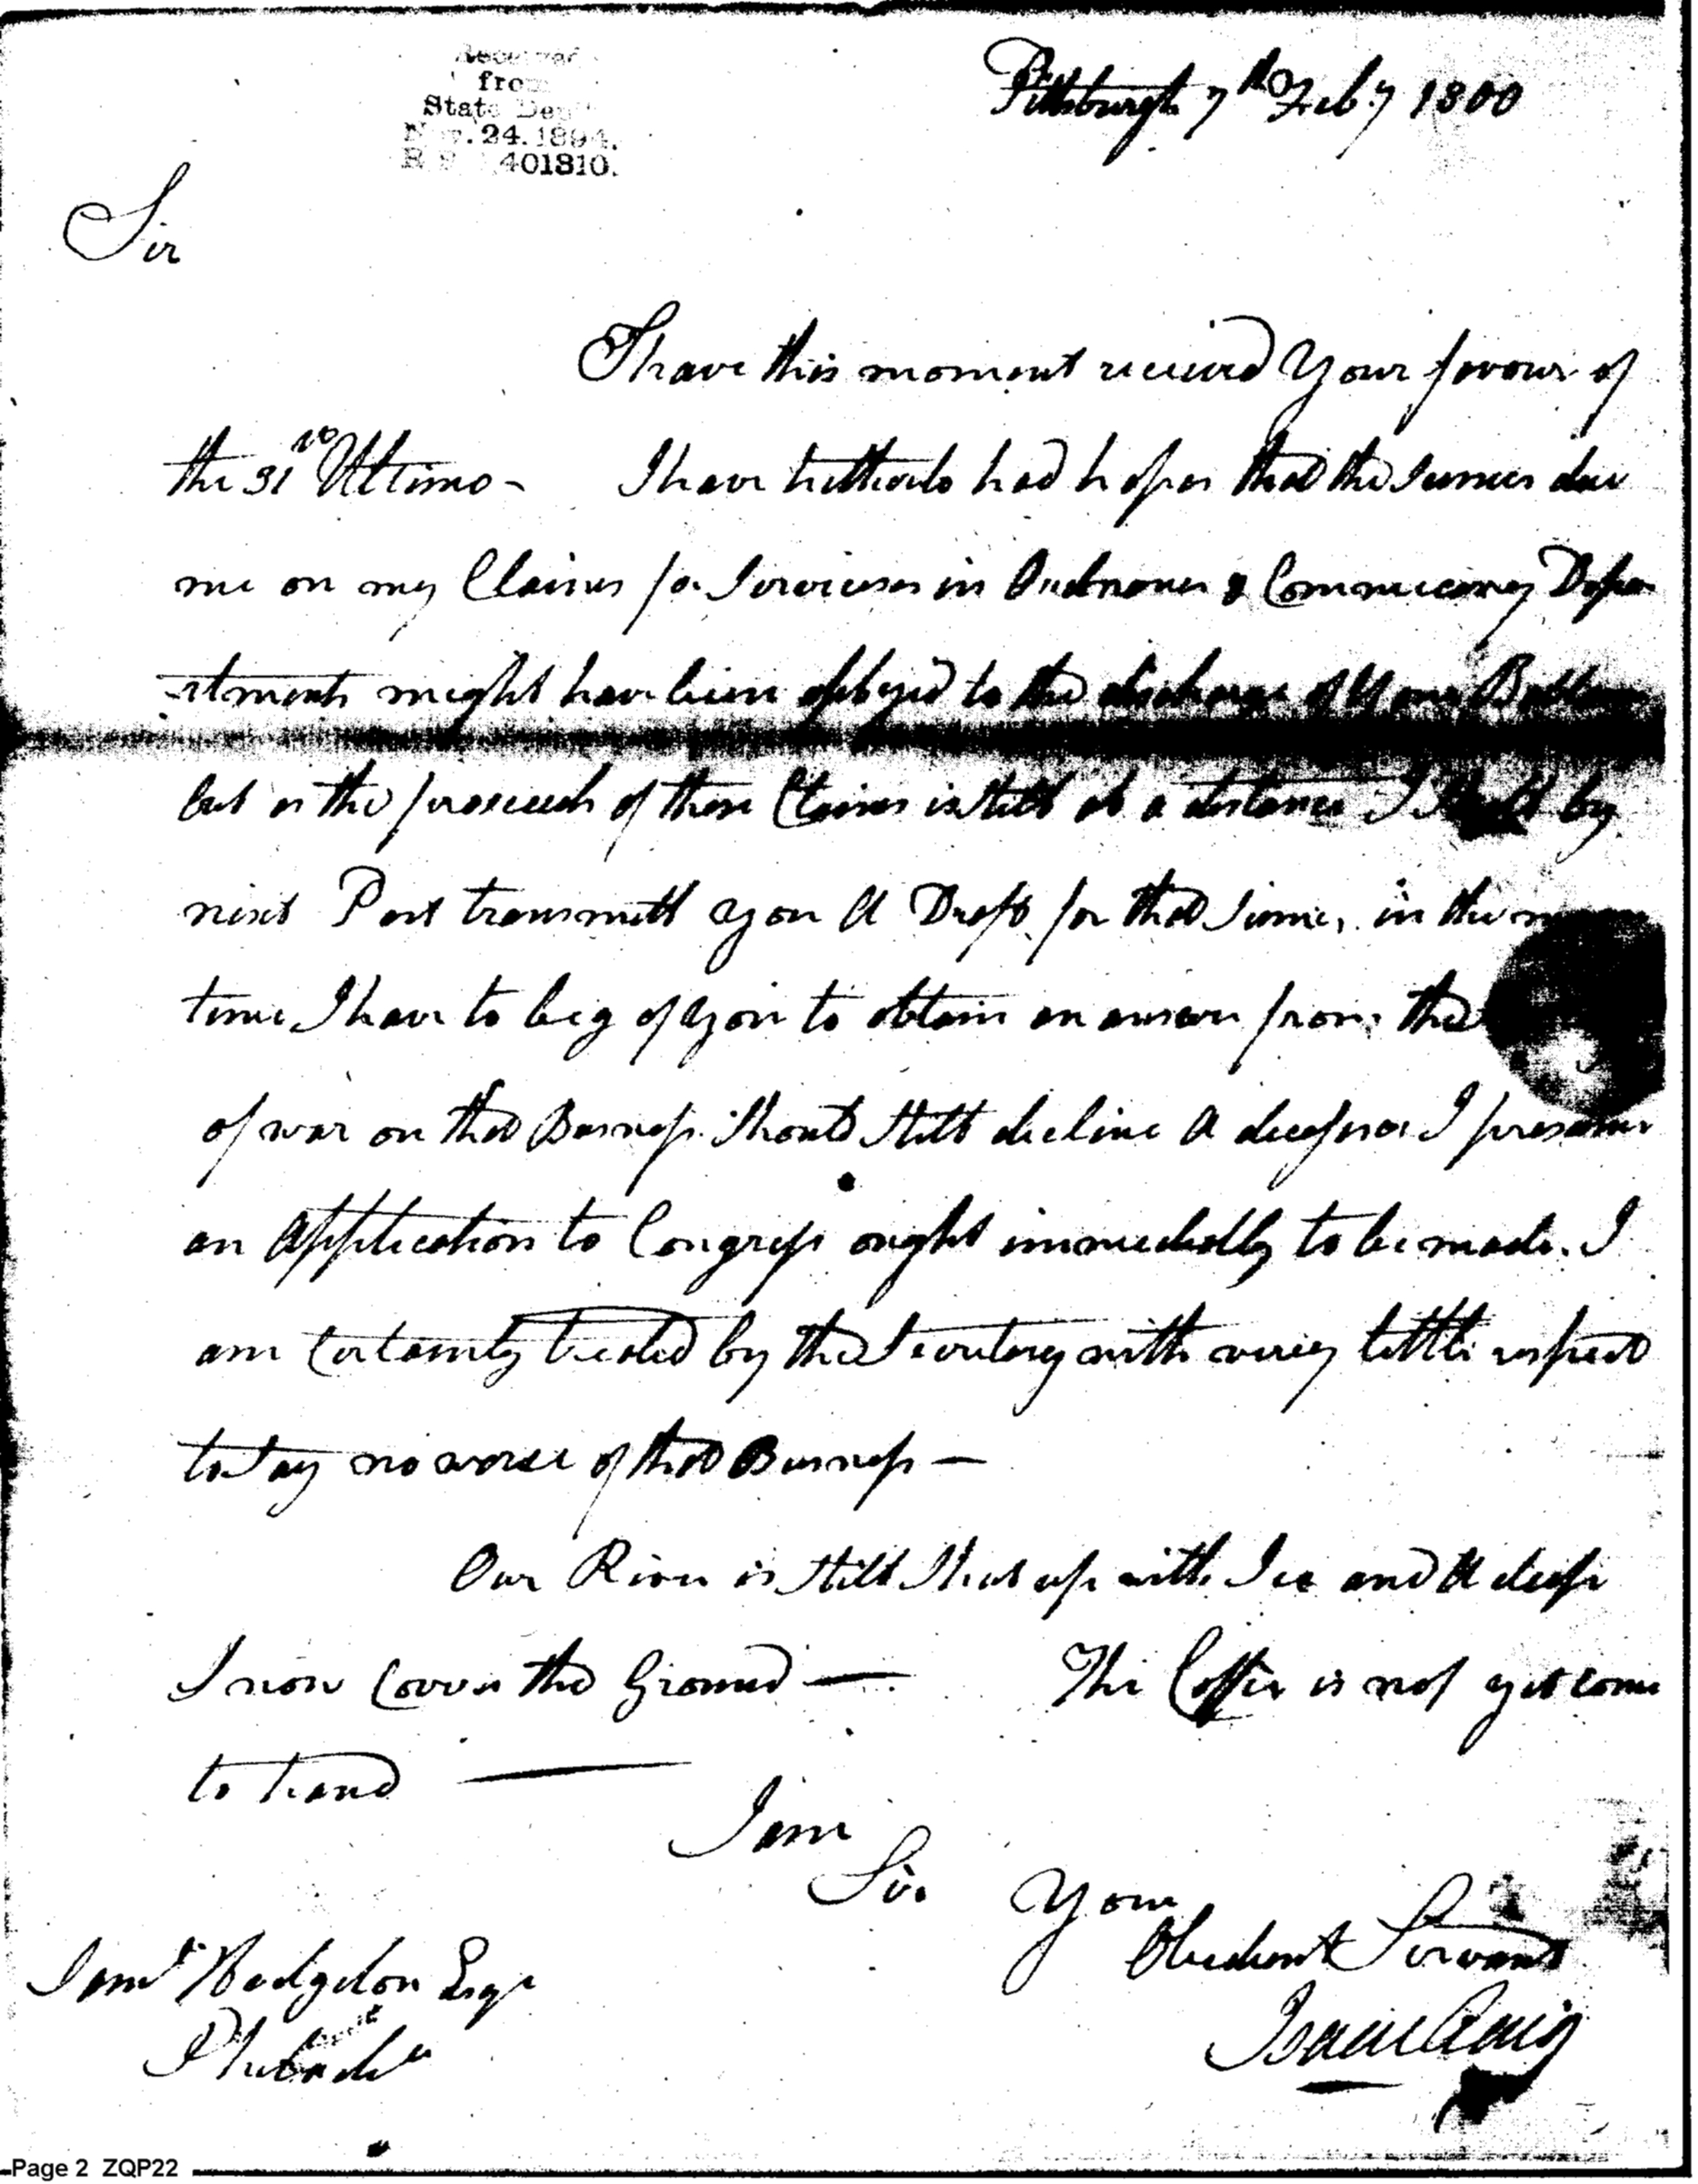 Received
from
State Dep
Nov. 24. 1894.
R 401310.
Pittsburgh 7th Feby 1800
Sir
I have this moment received Your favour of
the 31st Ultimo - I have hitherto had hopes that the Summs due
me on my Claims for Services in Ordnance & Commissary Depa
-rtments might have been applyed to the discharge of Your Ballance
but as the proceeds of these Claims is still at a distance I shall by
next Post transmitt you A Draft for that Summ, in the mean
time I have to beg of you to obtain an answer from the
of war on that Business. Should still decline A decission I presume
an Application to Congress ought immediatly to be made. I
am Certainly treated by the Secretary with verey little respect
to Say no worse of that Business —
Our River is still Shut up with Ice and A deep
Snow Covers the Ground — The Coffee is not yet come
to hand —
I am
Sir Your
Obedient Servant
Isaac Craig
Saml Hodgdon Esqr
Philada
Page 2 ZQP22